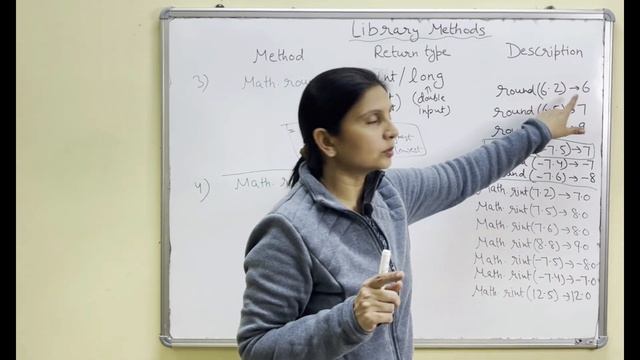 Library Methods
Method Return type Description
3) Math. rou nt/long
(double
input)
round(6.2)→6
round(6.5)→7
→9
-7.5)→7)
(-7.4)→-7
(-7.6)→-8
4) Math. r
Math rint(7.2)→7.0
Math. rint(7.5)→8.0
Math. rint(7.6)→8.0
Math. rint(8.8)→9.0
Math. rint(-7.5)→-8.0
Math. rint(-7.4)→-7.0
Math. rint(12.5)→12.0